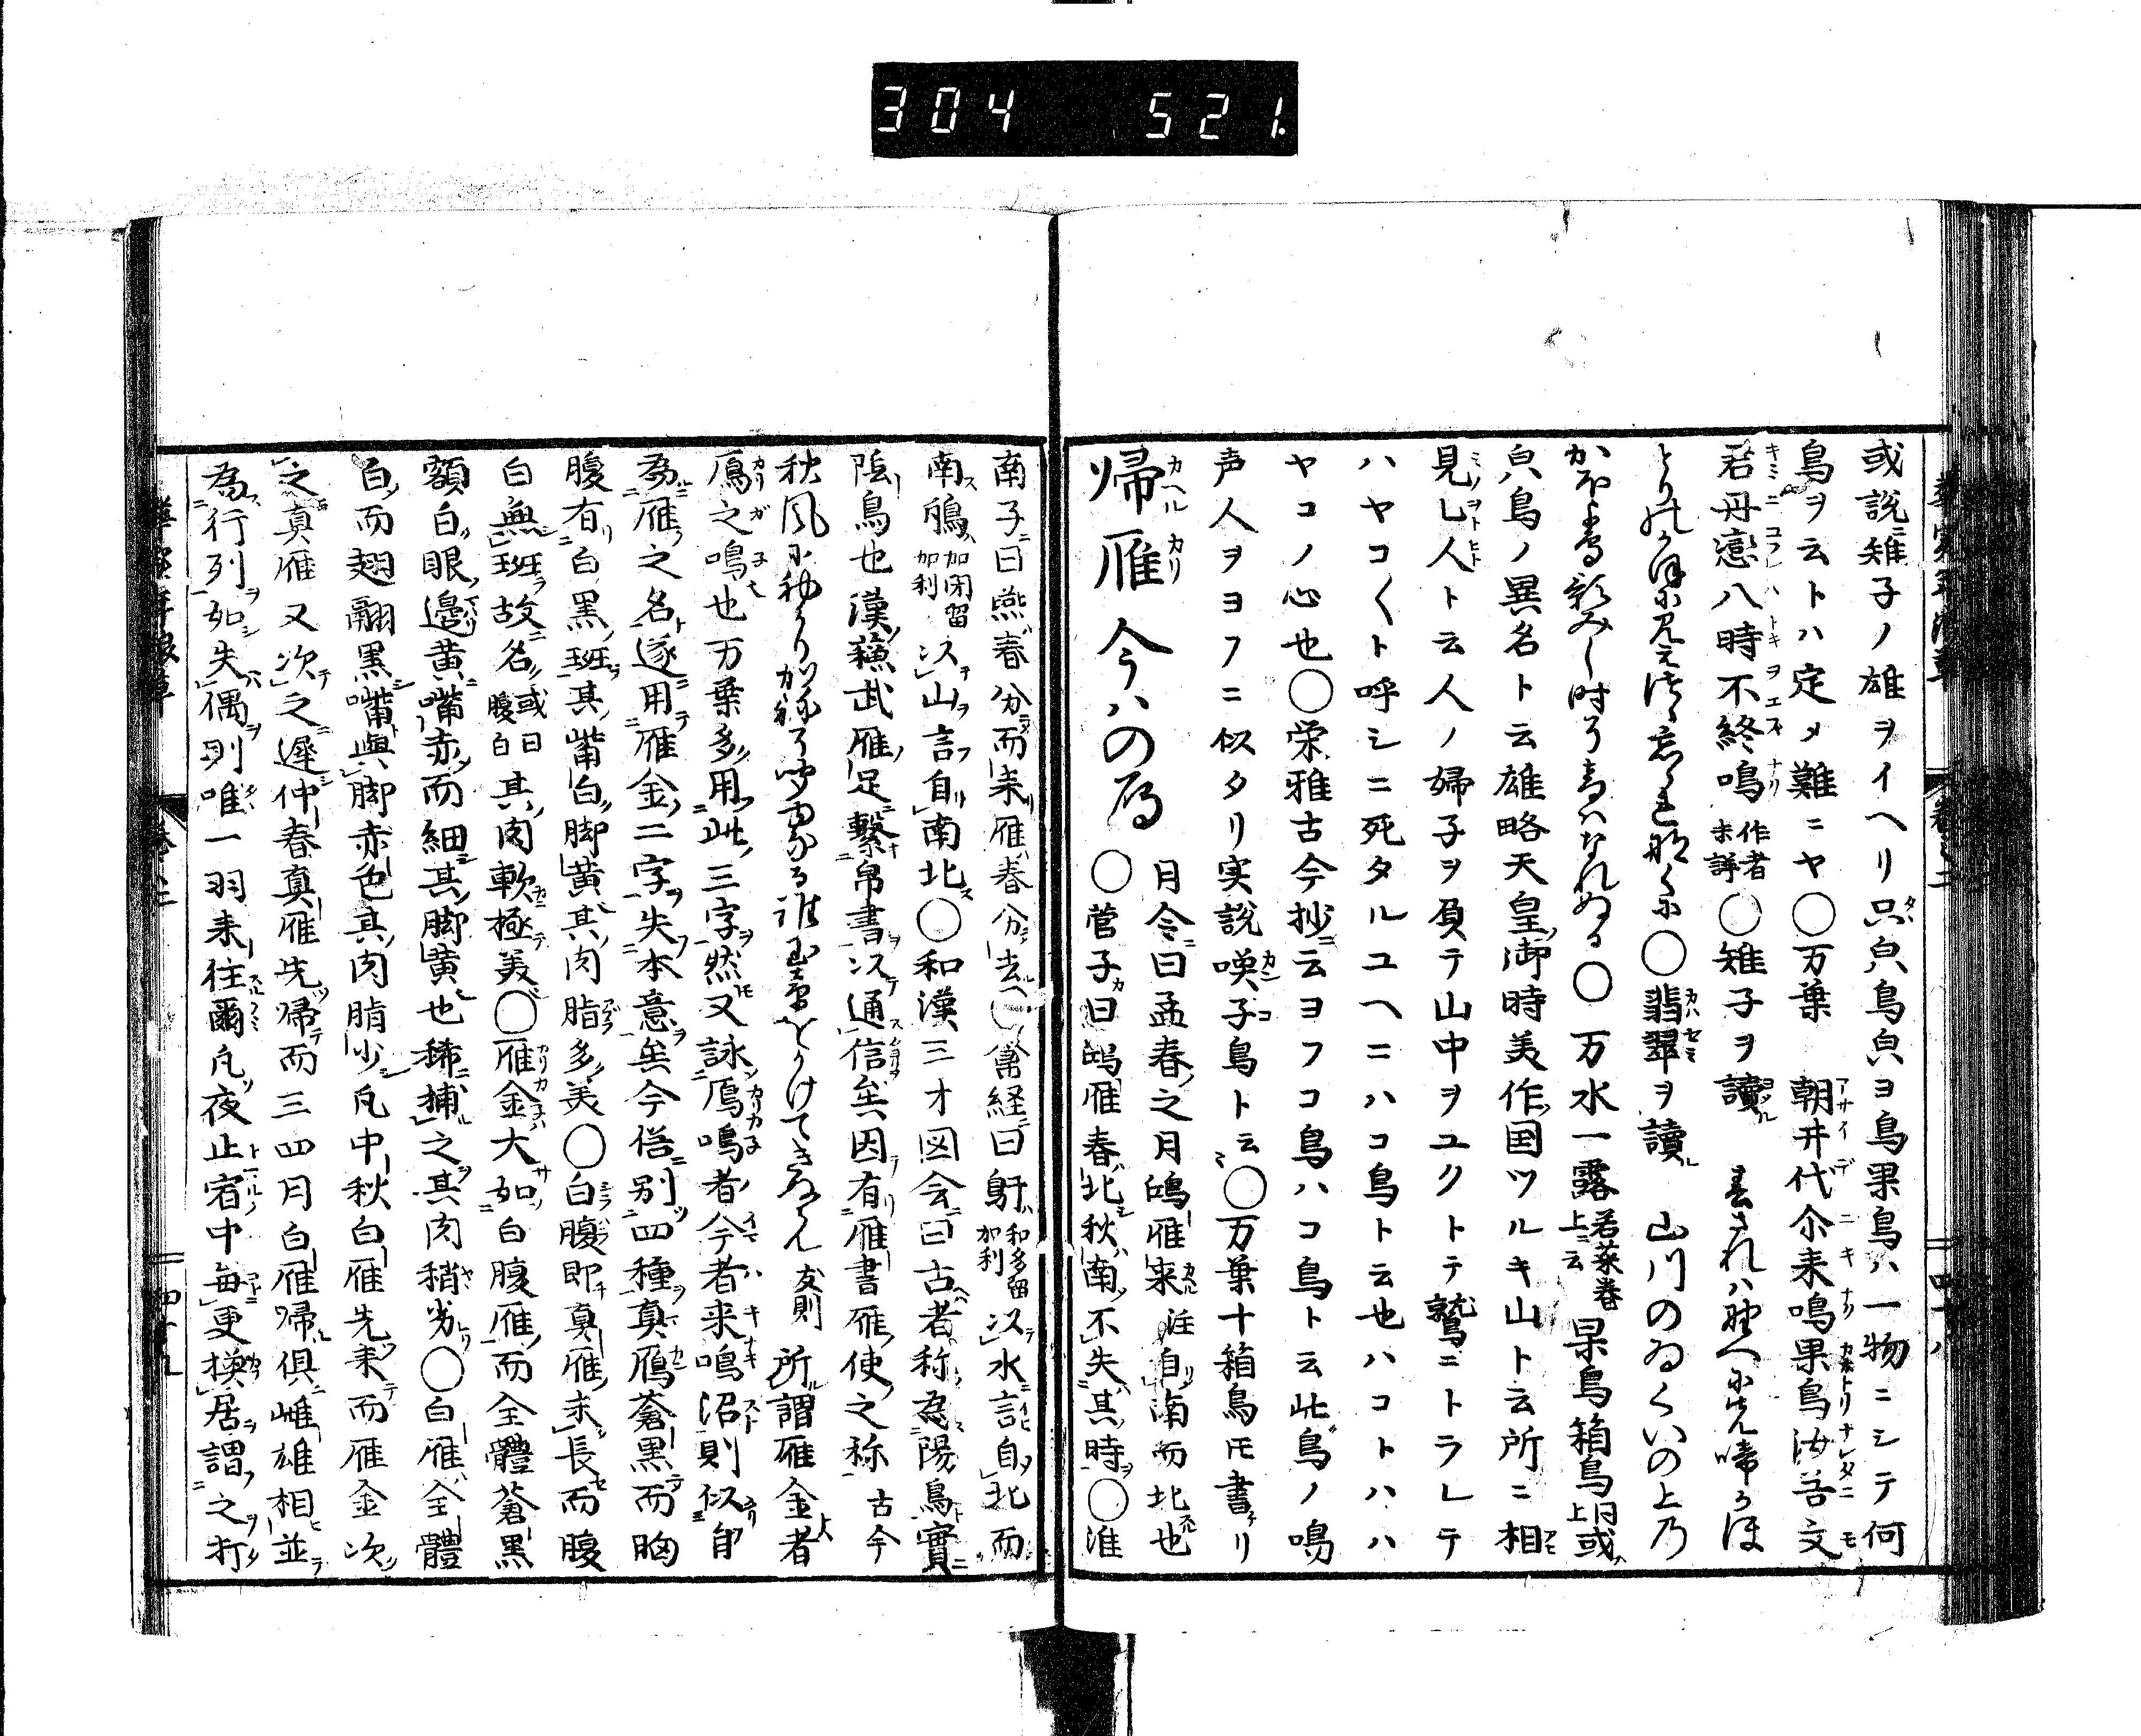 304 521.
或説ニ雉子ノ雄ヲイヘリ只㒵鳥㒵ヨ鳥果鳥ハ一物ニシテ何
鳥ヲ云トハ定メ難ニヤ〇万葉 朝井代尓来鳴果鳥汝苦文
君丹恋八時不終鳴 作者未詳 〇雉子ヲ讀 春されハ野へに先啼かほ
とりの 〇翡翠ヲ讀 山川のゐくいの上乃
かほよ鳥 〇万水一露 若菜巻上ニ云 杲鳥箱鳥 同上 或
㒵鳥ノ異名ト云雄略天皇ノ御時美作ノ国ツルキ山ト云所ニ相
見シ人ト云人ノ婦子ヲ負テ山中ヲユクトテ鷲ニトラレテ
ハヤコ〱ト呼シニ死タルユヘニハコ鳥ト云也ハコトハハ
ヤコノ心也〇栄雅古今抄ニ云ヨフコ鳥ハコ鳥ト云此鳥ノ鳴
声人ヲヨフニ似タリ実説喚子鳥ト云〇万葉十箱鳥モ書リ
帰雁 今ハの雁 月令ニ曰孟春之月鴻雁来 注自南而北也
〇管子曰鴻雁春北秋南不失其時〇淮
南子曰燕春分而来雁春分去〇禽経曰鳱 和多留加利 以水言自北而
南鳽 加閉留加利 以山言自南北〇和漢三才図会曰古者称為陽鳥實
陰鳥也漢蘇武雁足繋帛書以テ通信矣因有雁書雁使之称 古今
秋風に初かりかねそ聞ゆなる誰玉章をかけてきぬらん 友則 所謂雁金者
鴈之鳴也万葉多用此三字然又詠鴈鳴者今者来鳴沼則似自
為雁之名遂用雁金二字失本意矣今俗別四種真鴈蒼黒而胸
腹有白黒斑其觜白脚黄其肉脂多美〇白腹即真雁未長而腹
白無斑故名 或曰腹白 其肉軟極美〇雁金大如白腹雁而全體蒼黒
額白眼邊黄嘴赤而細其脚黄也稀捕之其肉稍劣〇白雁全體
白而翅翮黒嘴與脚赤色其肉脂少凡中秋白雁先来而雁金次
之真雁又次之遅仲春真雁先帰而三四月白雁帰俱雌雄相並
為行列如失偶則唯一羽来往爾凡夜止宿中毎更換居謂之打